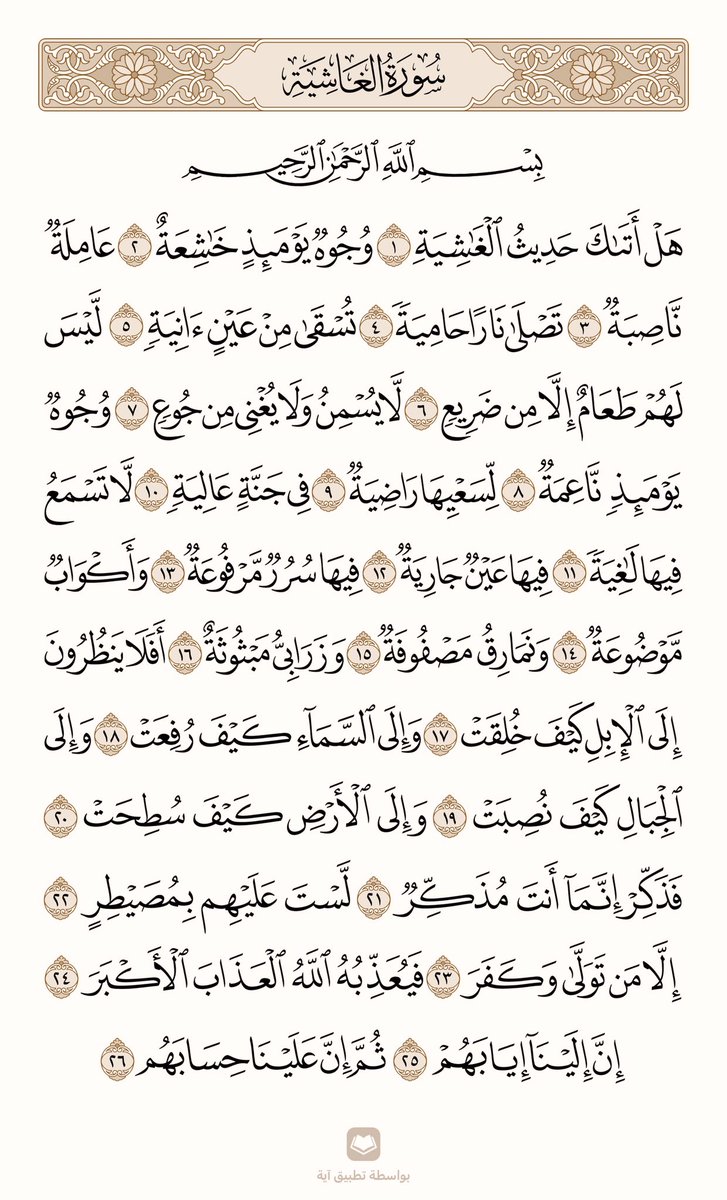 سُورَةُ الغَاشِيَةِ
بِسۡمِ ٱللَّهِ ٱلرَّحۡمَٰنِ ٱلرَّحِيمِ
هَلۡ أَتَىٰكَ حَدِيثُ ٱلۡغَٰشِيَةِ ١ وُجُوهٞ يَوۡمَئِذٍ خَٰشِعَةٌ ٢ عَامِلَةٞ
نَّاصِبَةٞ ٣ تَصۡلَىٰ نَارًا حَامِيَةٗ ٤ تُسۡقَىٰ مِنۡ عَيۡنٍ ءَانِيَةٖ ٥ لَّيۡسَ
لَهُمۡ طَعَامٌ إِلَّا مِن ضَرِيعٖ ٦ لَّا يُسۡمِنُ وَلَا يُغۡنِي مِن جُوعٖ ٧ وُجُوهٞ
يَوۡمَئِذٖ نَّاعِمَةٞ ٨ لِّسَعۡيِهَا رَاضِيَةٞ ٩ فِي جَنَّةٍ عَالِيَةٖ ١٠ لَّا تَسۡمَعُ
فِيهَا لَٰغِيَةٗ ١١ فِيهَا عَيۡنٞ جَارِيَةٞ ١٢ فِيهَا سُرُرٞ مَّرۡفُوعَةٞ ١٣ وَأَكۡوَابٞ
مَّوۡضُوعَةٞ ١٤ وَنَمَارِقُ مَصۡفُوفَةٞ ١٥ وَزَرَابِيُّ مَبۡثُوثَةٌ ١٦ أَفَلَا يَنظُرُونَ
إِلَى ٱلۡإِبِلِ كَيۡفَ خُلِقَتۡ ١٧ وَإِلَى ٱلسَّمَآءِ كَيۡفَ رُفِعَتۡ ١٨ وَإِلَى
ٱلۡجِبَالِ كَيۡفَ نُصِبَتۡ ١٩ وَإِلَى ٱلۡأَرۡضِ كَيۡفَ سُطِحَتۡ ٢٠
فَذَكِّرۡ إِنَّمَآ أَنتَ مُذَكِّرٞ ٢١ لَّسۡتَ عَلَيۡهِم بِمُصَيۡطِرٍ ٢٢
إِلَّا مَن تَوَلَّىٰ وَكَفَرَ ٢٣ فَيُعَذِّبُهُ ٱللَّهُ ٱلۡعَذَابَ ٱلۡأَكۡبَرَ ٢٤
إِنَّ إِلَيۡنَآ إِيَابَهُمۡ ٢٥ ثُمَّ إِنَّ عَلَيۡنَا حِسَابَهُم ٢٦
بواسطة تطبيق آية